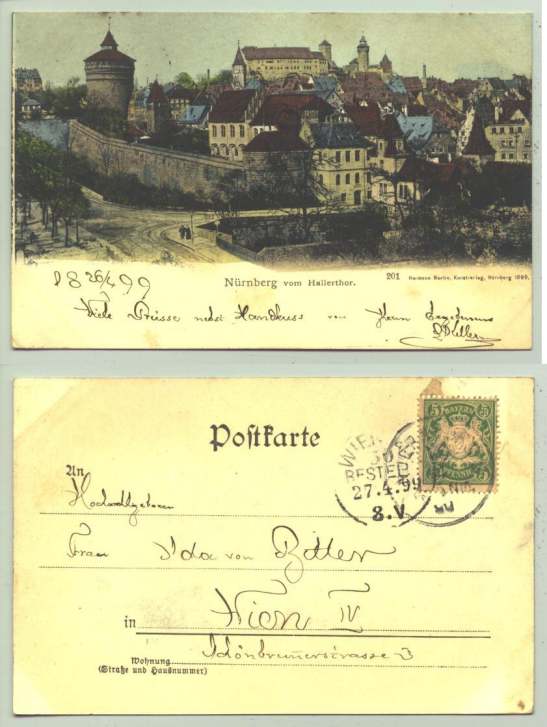 18 26/4 99
Nürnberg vom Hallerthor.
201 Hermann Martin, Kunstverlag, Nürnberg 1899.
Viele Grüsse nebst Handkuss von Ihrem Ergebenen
Postkarte
BAYERN
5
PFENNIG
WIEN
50
BESTELLT
27.4.99
8.V
An
Hochwohlgeboren
Frau Ida von
in Wien IV
Schönbrunnerstrasse 3
Wohnung
(Straße und Hausnummer)